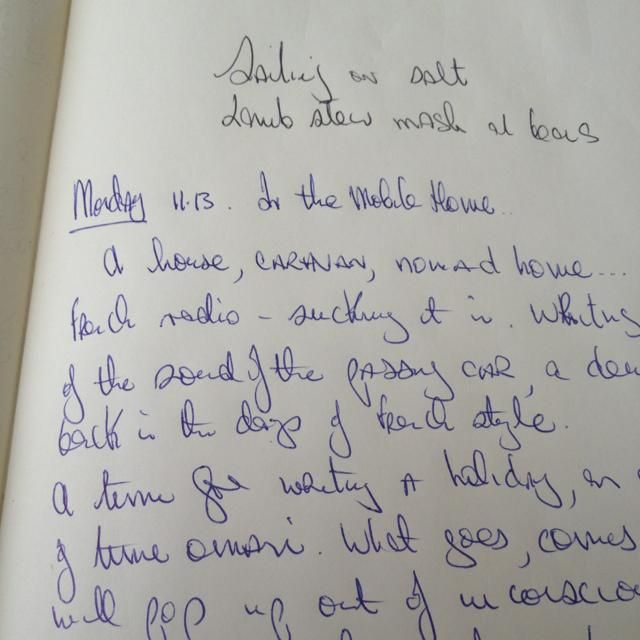 Sailing on salt
Lamb stew mash
Monday 11.13. In the Mobile Home..
A house, CARAVAN, nomad home...
French radio - sucking it in. Writing
of the sound of the passing CAR, a
back in the days of French style.
A time for writing A holiday, an
of time. What goes, comes
will pop up out of